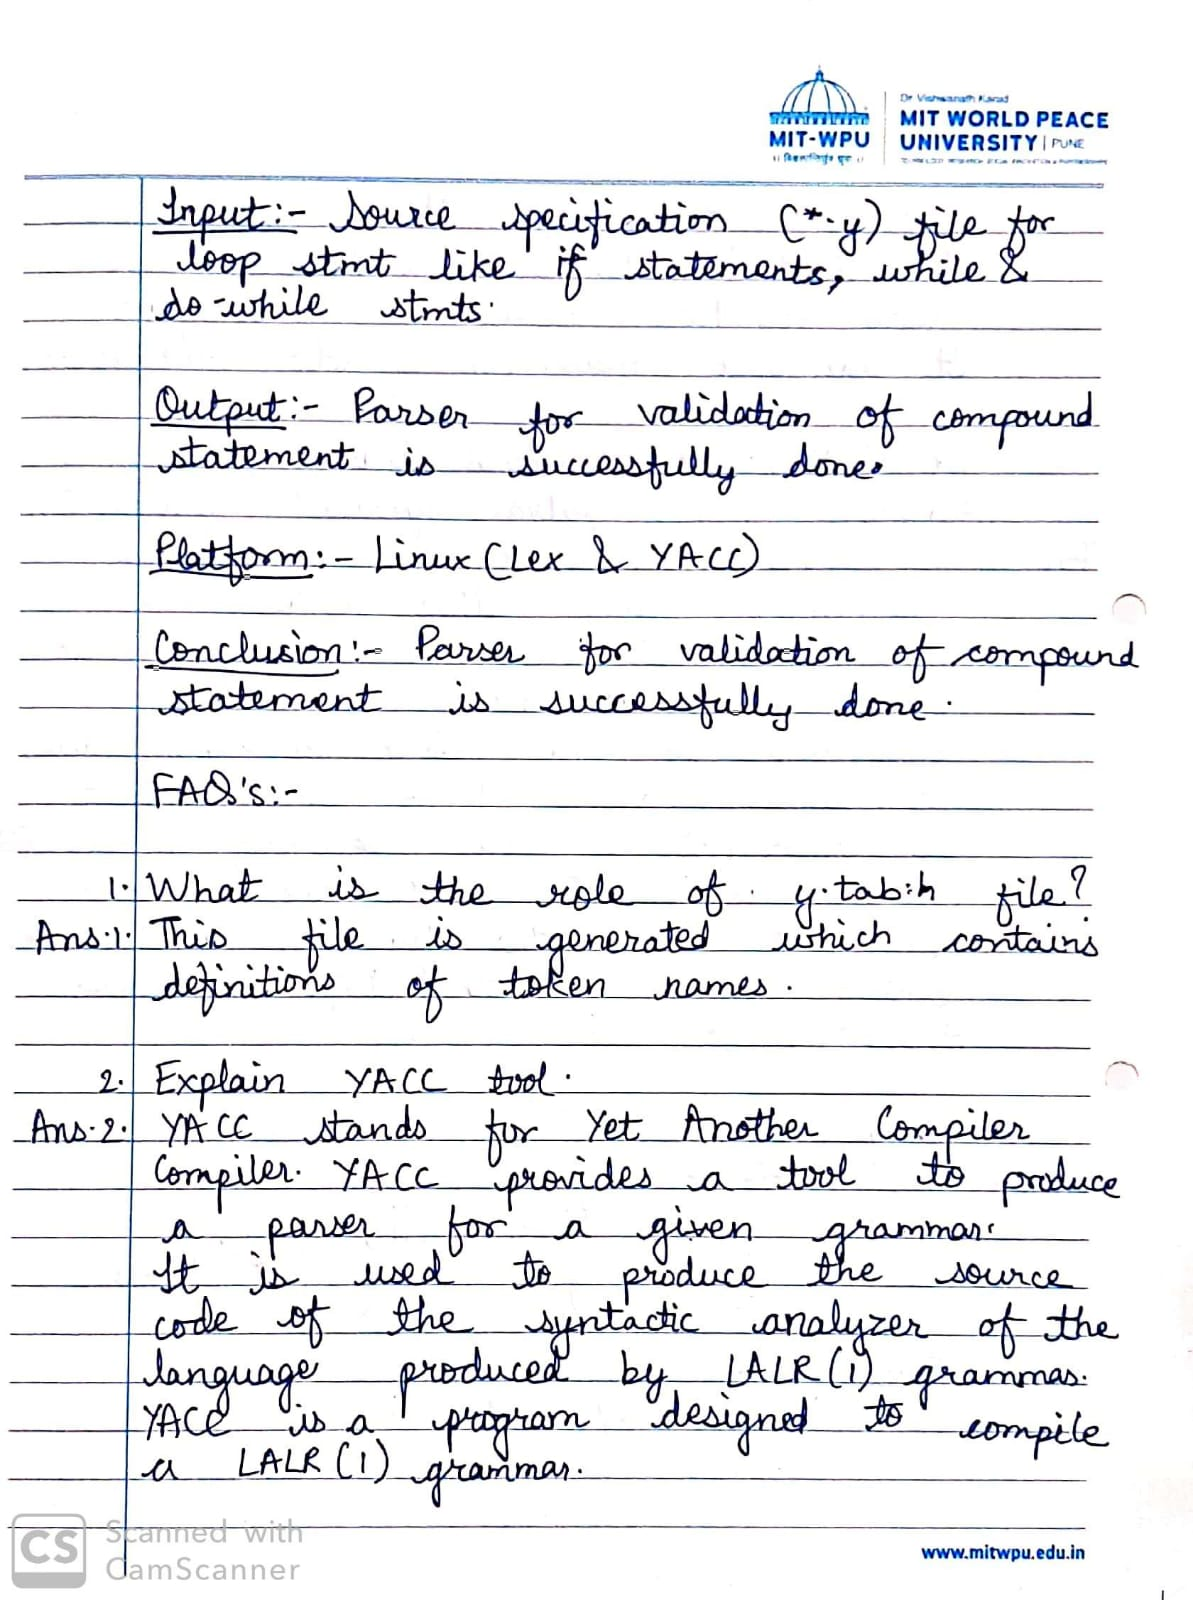 Dr Vishwanath Karad
MIT WORLD PEACE
UNIVERSITY | PUNE
MIT-WPU
Input:- Source specification (*.y) file for
loop stmt like if statements, while &
do-while stmts.
Output:- Parser for validation of compound
statement is successfully done.
Platform:- Linux (Lex & YACC)
Conclusion:- Parser for validation of compound
statement is successfully done.
FAQ's:-
1. What is the role of y.tab.h file?
Ans.1. This file is generated which contains
definitions of token names.
2. Explain YACC tool.
Ans.2. YACC stands for Yet Another Compiler
Compiler. YACC provides a tool to produce
a parser for a given grammar.
It is used to produce the source
code of the syntactic analyzer of the
language produced by LALR (1) grammar.
YACC is a program designed to compile
a LALR (1) grammar.
CS Scanned with
CamScanner
www.mitwpu.edu.in